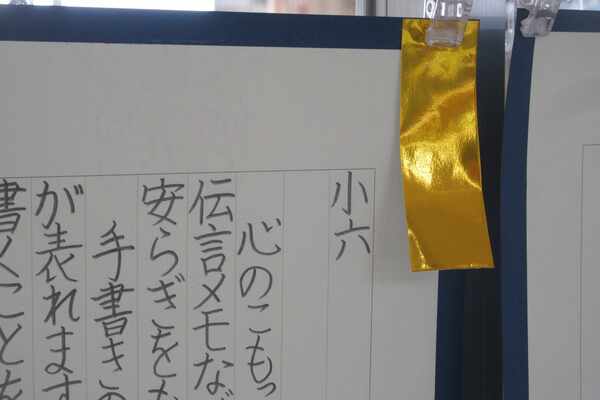 小六
心のこもっ
伝言メモな
安らぎをも
手書きの
が表れます
書くことを